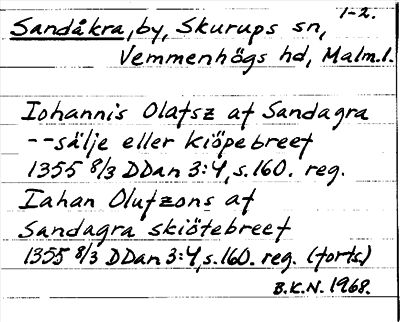 1-2.
Sandåkra, by, Skurups sn,
Vemmenhögs hd, Malm.l.
Iohannis Olafsz af Sandagra
--sälje eller kiöpebreef
1355 8/3 DDan 3:4, s.160. reg.
Iahan Olufzons af
Sandagra skiötebreef
1355 8/3 DDan 3:4, s.160. reg. (forts.)
B.K.N. 1968.